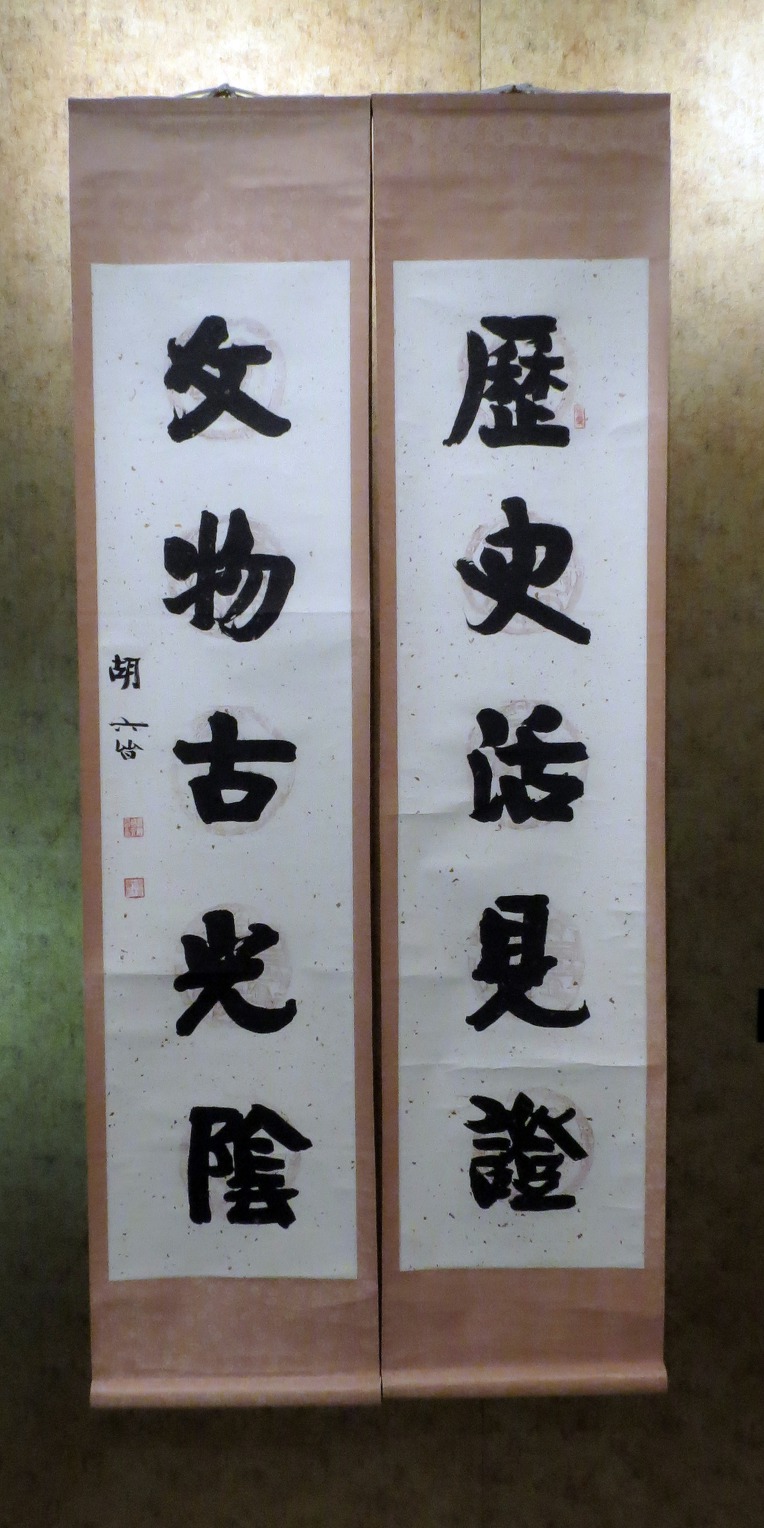 歷史活見證
文物古光陰
胡